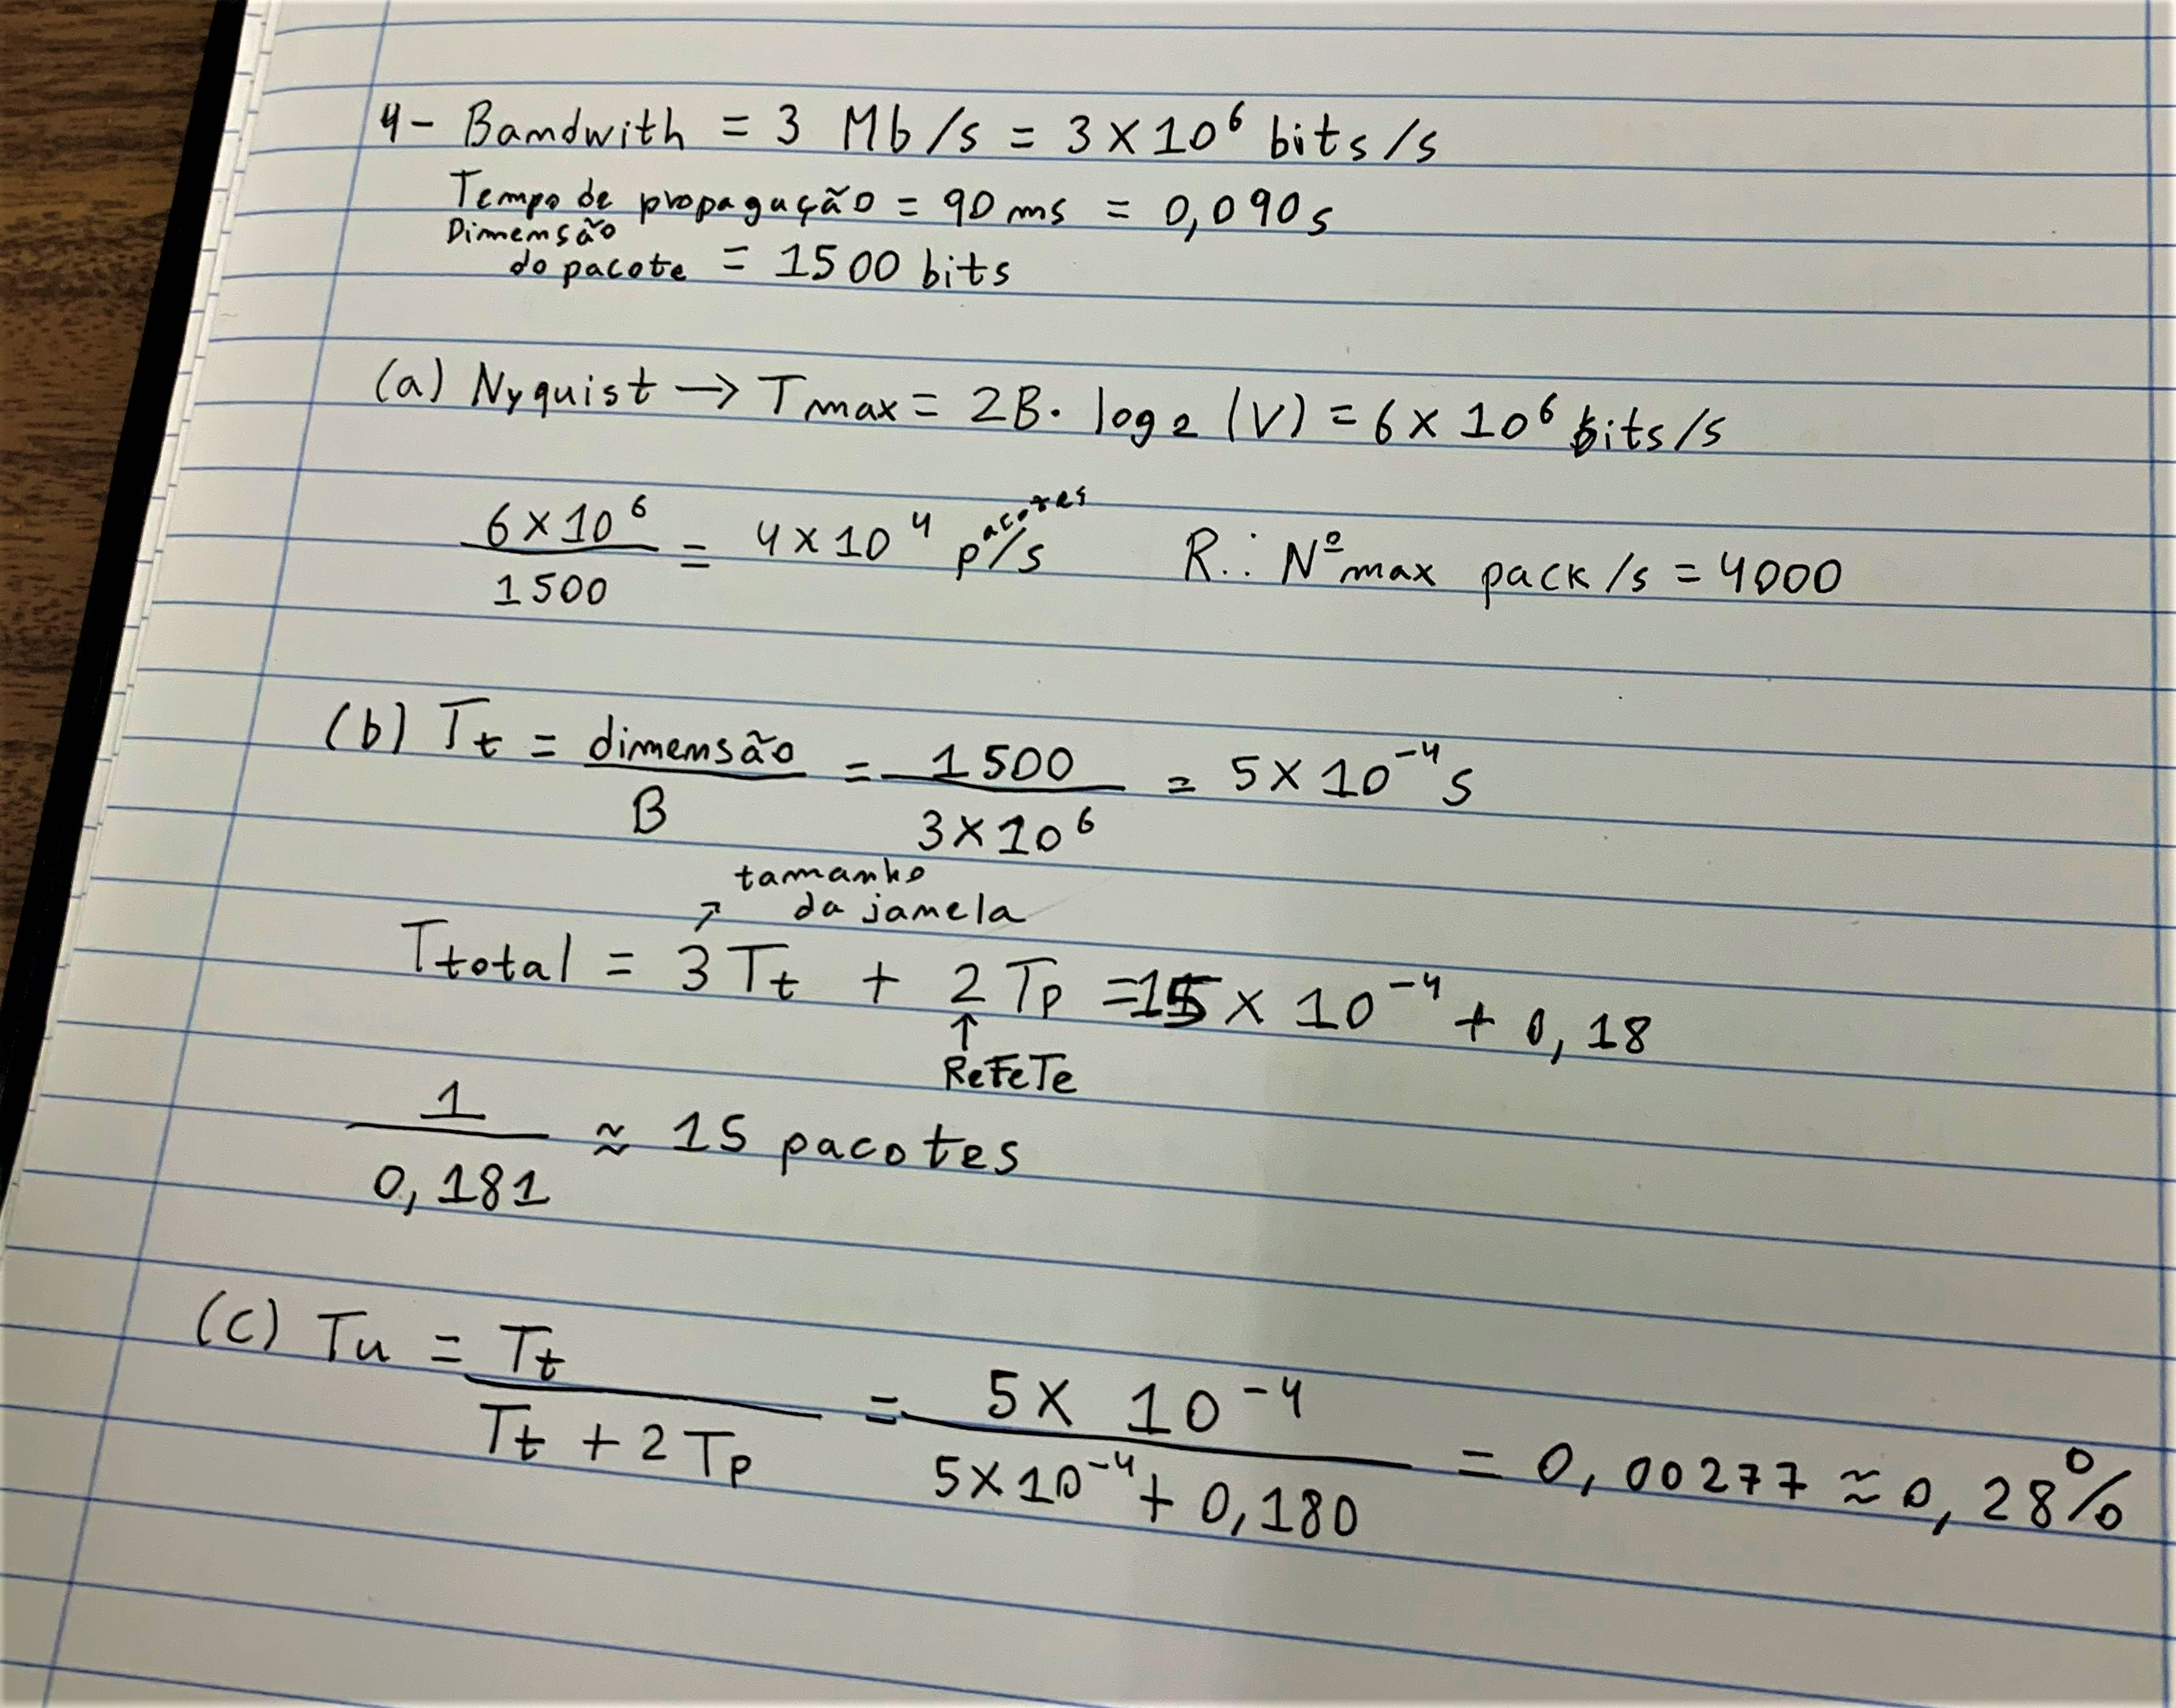 4- Bamdwith = 3 Mb/s = 3 X 10^6 bits/s
Tempo de propagação = 90 ms = 0,090s
Dimensão
do pacote = 1500 bits
(a) Nyquist → Tmax = 2B. log2 (V) = 6 X 10^6 bits/s
6 X 10^6 / 1500 = 4 X 10^4 pacotes/s R.: Nº max pack/s = 4000
(b) Tt = dimensão / B = 1500 / 3X10^6 = 5 X 10^-4 s
tamanho
da janela
Ttotal = 3 Tt + 2 Tp = 15 X 10^-4 + 0,18
ReFeTe
1 / 0,181 ≈ 15 pacotes
(c) Tu = Tt / Tt + 2 Tp = 5 X 10^-4 / 5X10^-4 + 0,180 = 0,00277 ≈ 0,28%